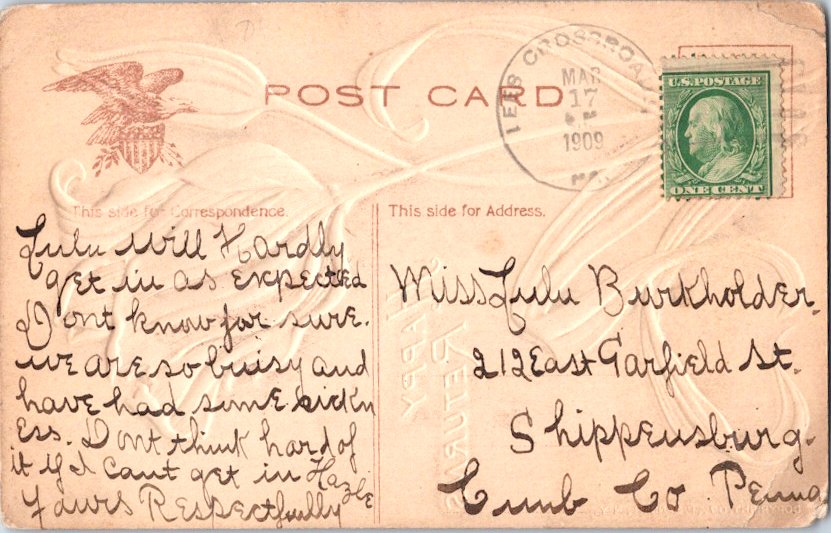 POST CARD
LEES CROSSROADS
MAR
17
1909
PA.
U.S. POSTAGE
ONE CENT
This side for Correspondence.
This side for Address.
Lulu Will Hardly
get in as expected
Dont know for sure.
we are so buisy and
have had some sickn
ess. Dont think hard of
it if I cant get in Hazle
Yours Respectfully
Miss Lulu Burkholder.
212 East Garfield St.
Shippensburg.
Cumb Co Penna
HAPPY
RETURNS